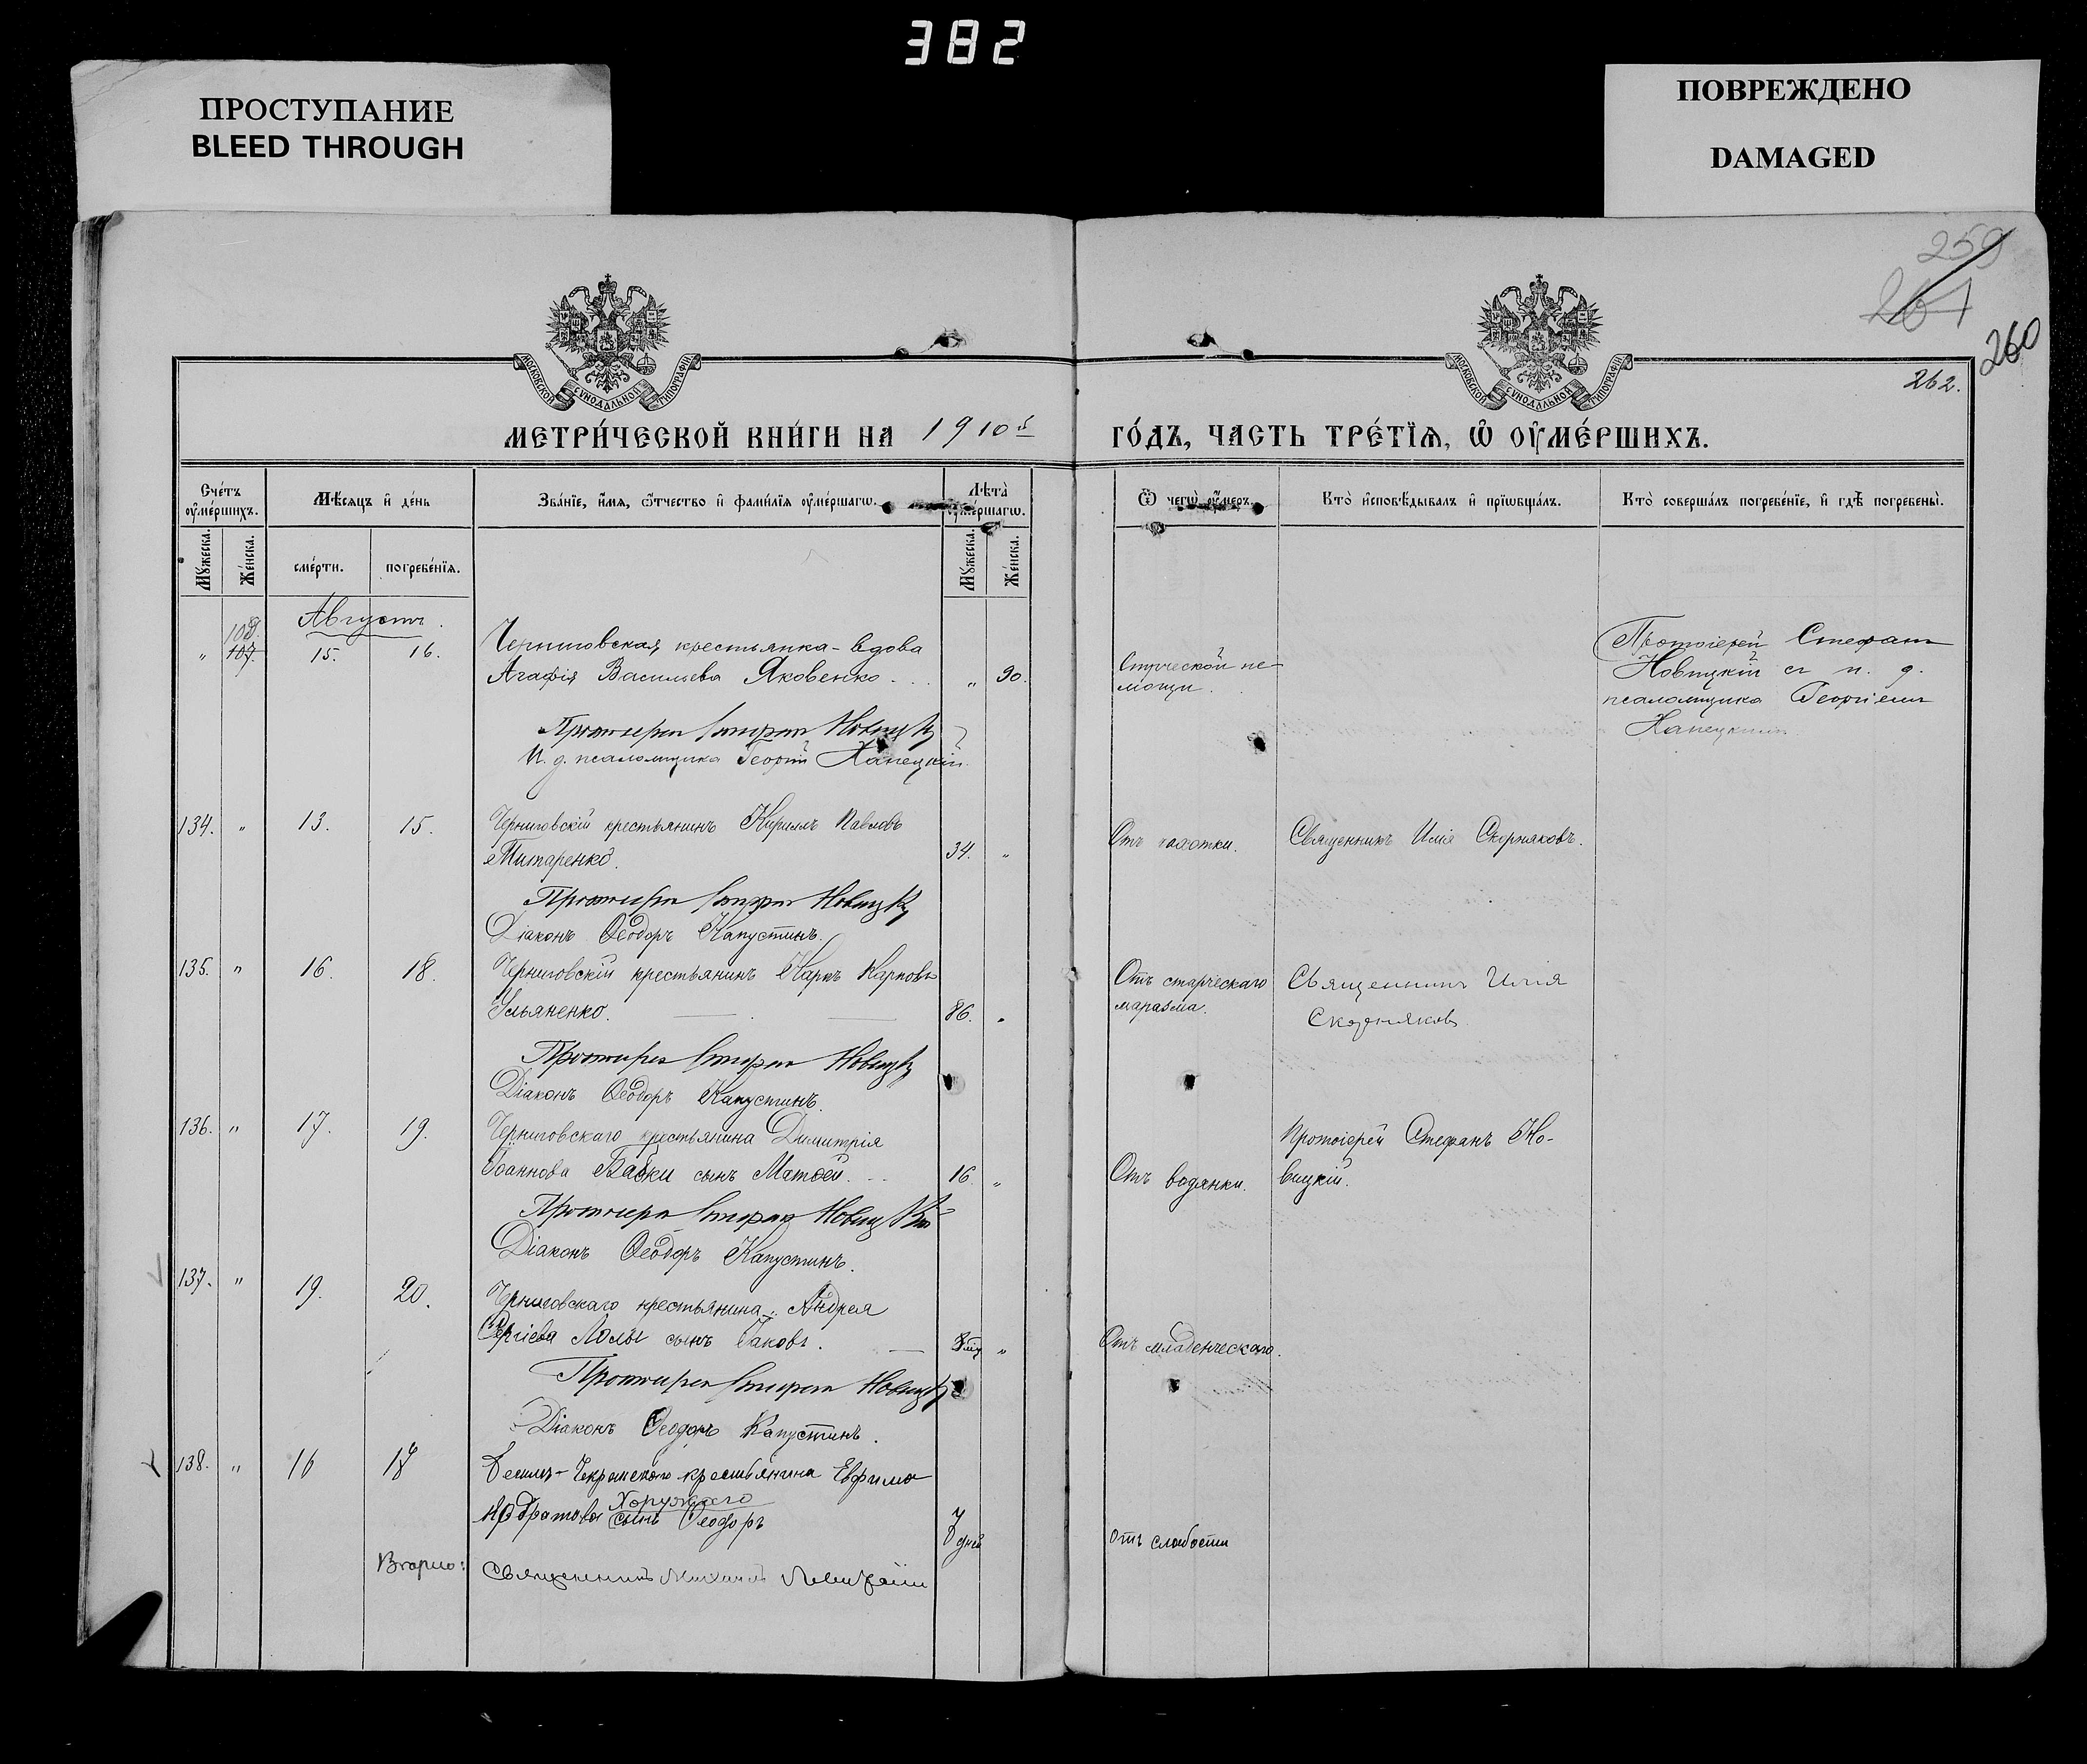 382
ПРОСТУПАНИЕ
BLEED THROUGH
ПОВРЕЖДЕНО
DAMAGED
259
261
260
262.
МОСКОВСКОЙ СУНОДАЛЬНОЙ ТИПОГРАФІИ
МОСКОВСКОЙ СУНОДАЛЬНОЙ ТИПОГРАФІИ
МЕТРИ́ЧЕСКОЙ КНИ́ГИ НА 1910й ГО́ДЪ, ЧАСТЬ ТРЕ́ТЇѦ, Ѡ҆ ОУ҆МЕ́РШИХЪ.
Сче́тъ оу҆ме́ршихъ.
Мѣ́сяцъ и҆ де́нь
Зва́нїе, и҆́мя, ѻ҆́тчество и҆ фами́лїя оу҆ме́ршагѡ.
Лѣта̀ оу҆ме́ршагѡ.
Ѿ чегѡ̀ оу҆́меръ.
Кто̀ и҆сповѣ́дывалъ и҆ прїѡбща́лъ.
Кто̀ соверша́лъ погребе́нїе, и҆ гдѣ̀ погребены̀.
Мꙋ́жеска.
Же́нска.
сме́рти.
погребе́нїя.
Мꙋ́жеска.
Же́нска.
Августъ.
108.
" 107. 15. 16. Черниговская крестьянка-вдова
Агафія Васильева Яковенко . . . " 90.
Старческой не-
мощи.
Протоіерей Стефанъ
Новицкій съ и. д.
псаломщика Георгіемъ
Ханецкимъ
Протоіерей Стефанъ Новицкій
И. д. псаломщика Георгій Ханецкій.
134. " 13. 15. Черниговскій крестьянинъ Кириллъ Павловъ
Титаренко. 34. " Отъ чахотки. Священникъ Илія Скорняковъ.
Протоіерей Стефанъ Новицкій
Діаконъ Ѳеодоръ Капустинъ.
135. " 16. 18. Черниговскій крестьянинъ Карпъ Карповъ
Ульяненко. 86. " Отъ старческаго
маразма.
Священникъ Илія
Скорняковъ
Протоіерей Стефанъ Новицкій
Діаконъ Ѳеодоръ Капустинъ.
136. " 17. 19. Черниговскаго крестьянина Димитрія
Іоаннова Бабки сынъ Матѳей. 16. " Отъ водянки.
Протоіерей Стефанъ Но-
вицкій.
Протоіерей Стефанъ Новицкій
Діаконъ Ѳеодоръ Капустинъ.
137. " 19. 20. Черниговскаго крестьянина Андрея
Сергіева Лолы сынъ Іаковъ. "
Отъ младенческаго.
Протоіерей Стефанъ Новицкій
Діаконъ Ѳеодоръ Капустинъ.
138. " 16 17 крестьянина Евфима
Хоружаго
сынъ Ѳеодоръ 7 дней Отъ слабости
Священникъ Михаилъ